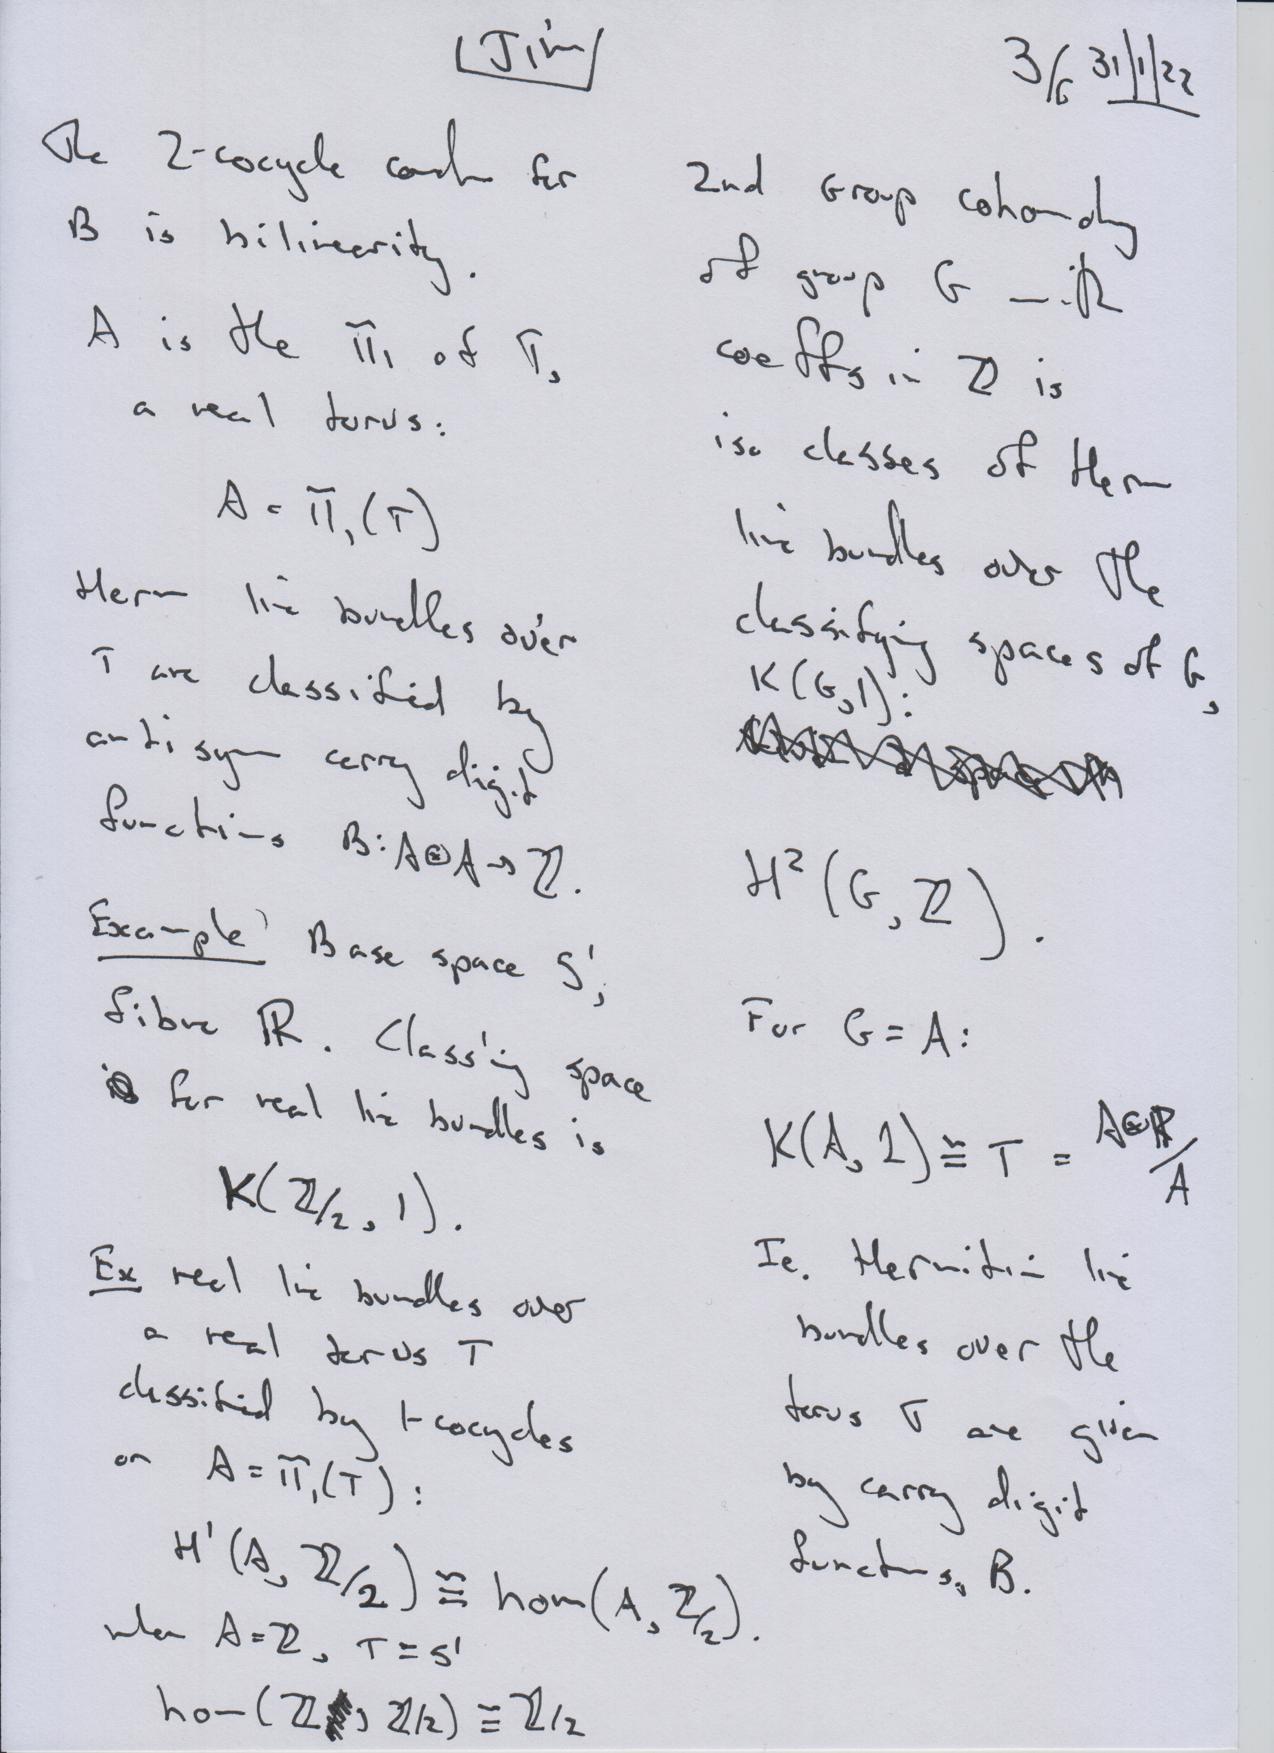 Jim
3/6 31/1/22
The 2-cocycle condn for
B is bilinearity.
A is the π₁ of T,
a real torus:
A = π₁(T)
Herm line bundles over
T are classified by
antisym carry digit
functions B: A⊗A → ℤ.
Example: Base space S¹,
fibre ℝ. Class'ing space
for real line bundles is
K(ℤ/2, 1).
Ex real line bundles over
a real torus T
classified by 1-cocycles
on A = π₁(T):
H¹(A, ℤ/2) ≅ hom(A, ℤ/2).
when A=ℤ, T=S¹
hom(ℤ, ℤ/2) ≅ ℤ/2
2nd Group cohomology
of group G with
coeffs in ℤ is
iso classes of Herm
line bundles over the
classifying spaces of G,
K(G,1):
H²(G, ℤ).
For G = A:
K(A, 1) ≅ T = A⊗ℝ/A
Ie. Hermitian line
bundles over the
torus T are given
by carry digit
functions, B.